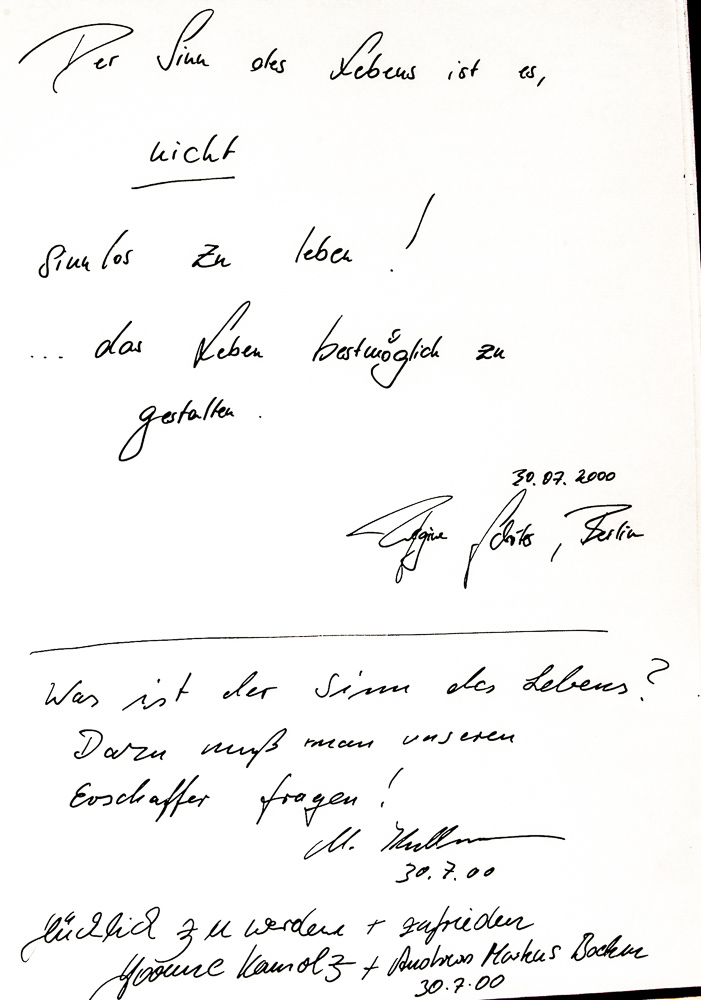 Der Sinn des Lebens ist es,
nicht
sinnlos zu leben!
... das Leben bestmöglich zu
gestalten.
30.07.2000
, Berlin
Was ist der Sinn des Lebens?
Dazu muß man unseren
Erschaffer fragen!
M.
30.7.00
glücklich zu werden + zufrieden
Yvonne Kamolz + Andreas Markus
30.7.00